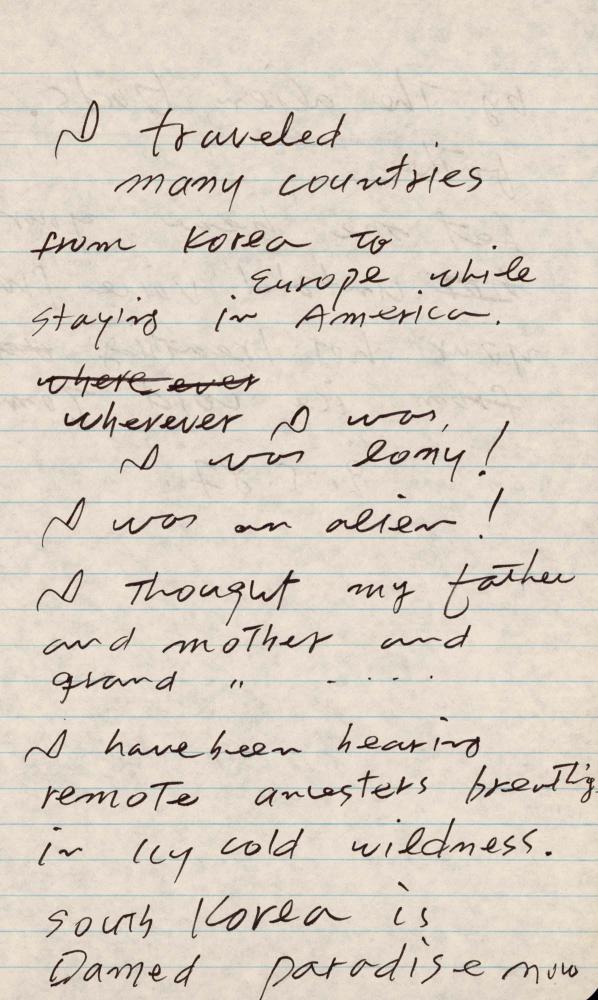 I traveled
many countries
from Korea to
Europe while
staying in America.
where ever
wherever I was,
I was lony!
I was an alien!
I thought my father
and mother and
grand " - . . .
I have been hearing
remote ancesters breathig
in icy cold wildness.
South Korea is
Damed paradise now